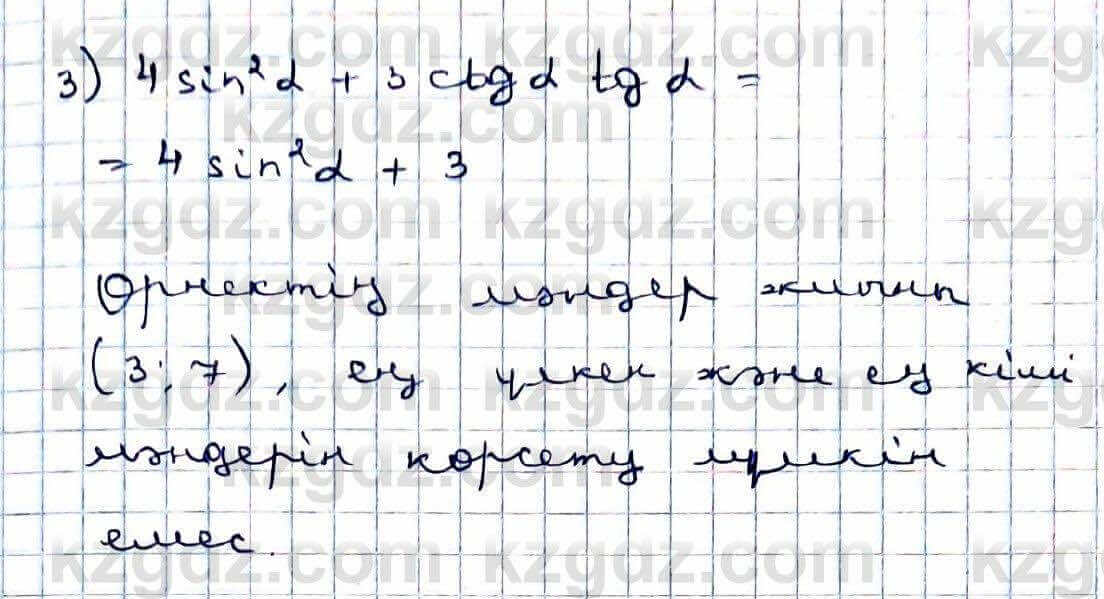 3) 4 sin²α + 3 ctg α tg α =
= 4 sin²α + 3
Өрнектің мәндер жиыны
(3; 7), ең үлкен және ең кіші
мәндерін көрсету мүмкін
емес.